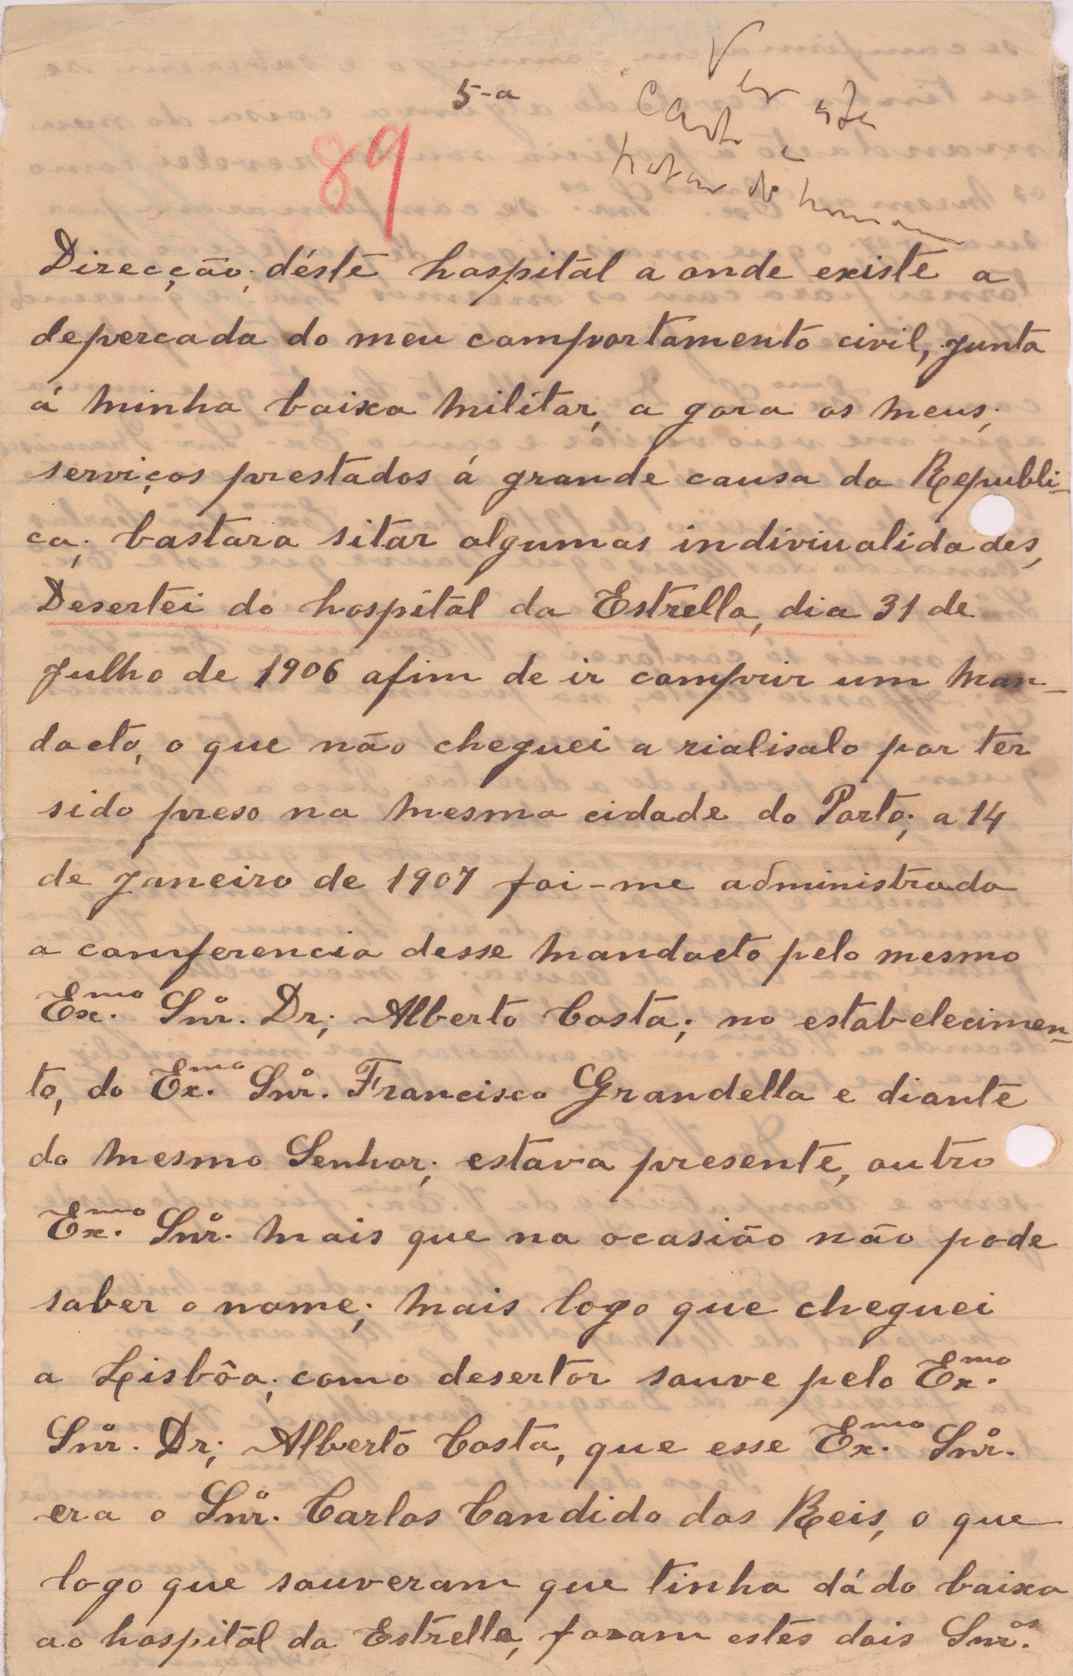 5-a
89
Ver este
Carta e
tratar de
Direcção; déste hospital a onde existe a
depercada do meu comportamento civil, junta
á minha baixa militar, a gora os meus;
serviços prestados á grande causa da Republi-
ca; bastara sitar algumas indiviualidades,
Desertei do hospital da Estrella, dia 31 de
Julho de 1906 afim de ir comprir um man-
dacto, o que não cheguei a rialisalo por ter
sido preso na mesma cidade do Porto; a 14
de Janeiro de 1907 foi-me administrada
a comferencia desse mandacto pelo mesmo
Ex.mo Snr. Dr; Alberto Costa; no estabelecimen-
to, do Ex.mo Snr. Francisco Grandella e diante
do mesmo Senhor; estava presente, outro
Ex.mo Snr. mais que na ocasião não pode
saber o nome; mais logo que cheguei
a Lisbôa; como desertor souve pelo Ex.mo
Snr. Dr; Alberto Costa, que esse Ex.mo Snr.
era o Snr. Carlos Candido dos Reis, o que
logo que souveram que tinha dádo baixa
ao hospital da Estrella, foram estes dois Snr.os